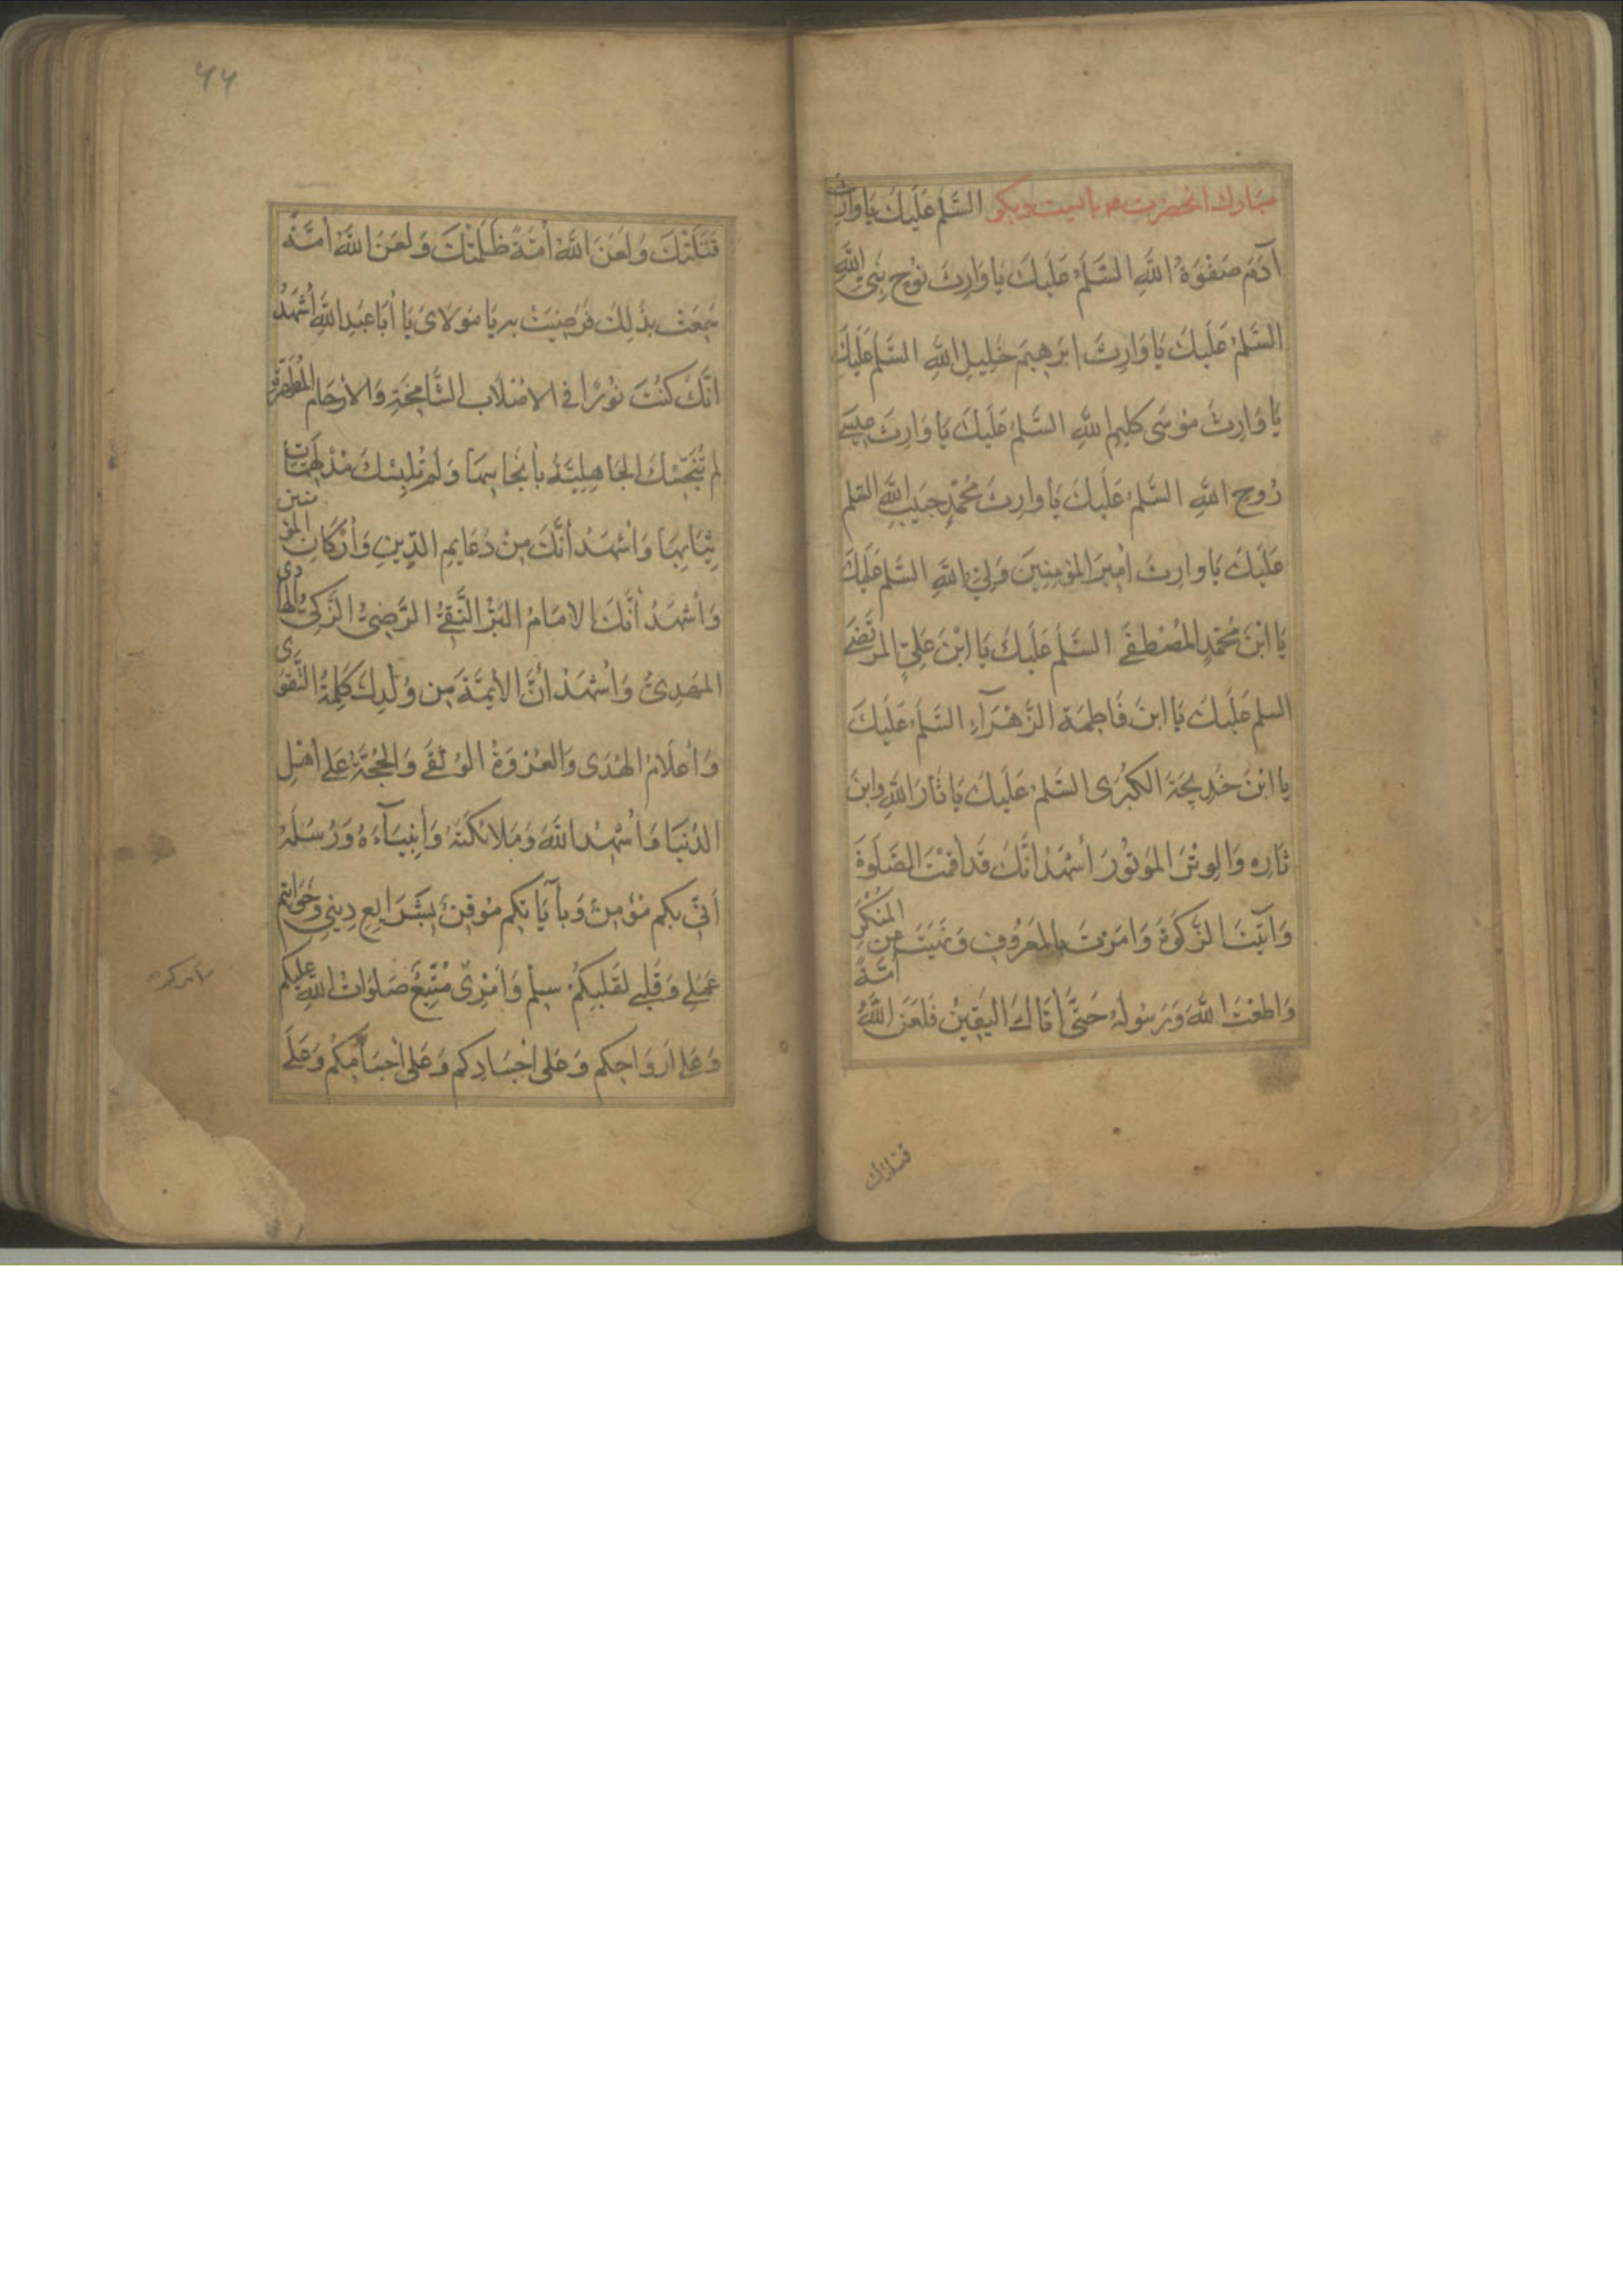 مبارك انحضرت مى بايست و بكو السَّلَمُ عَلَيْكَ يَا وَارِثَ
آدَمَ صَفْوَةِ اللَّهِ السَّلَمُ عَلَيْكَ يَا وَارِثَ نُوحٍ نَبِيِّ اللَّهِ
السَّلَمُ عَلَيْكَ يَا وَارِثَ ابرَهِيمَ خَلِيلِ اللَّهِ السَّلَمُ عَلَيْكَ
يَا وَارِثَ مُوسَى كَلِيمِ اللَّهِ السَّلَمُ عَلَيْكَ يَا وَارِثَ عِيسَى
رُوحِ اللَّهِ السَّلَمُ عَلَيْكَ يَا وارِثَ مُحَمَّدٍ حَبِيبِ اللَّهِ السَّلَم
عَلَيْكَ يَا وارِثَ أَمِيرَ المُؤمِنِينَ وَلِيِّ اللَّهِ السَّلَم عَلَيْكَ
يَا ابْنَ مُحَمَّدٍ المُصْطَفَى السَّلَم عَلَيْكَ يَا ابْنَ عَلِيٍّ المُرتَضَى
السلم عَلَيْكَ يَا ابنَ فَاطِمَةَ الزَّهْرَآءِ السَّلَمُ عَلَيْكَ
يا ابْنَ خَدِيجَةَ الكُبْرَى السَّلَمُ عَلَيْكَ يَا ثَارَ اللَّهِ وابنَ
ثَارِه وَالوِتْرَ المَوتُورَ أَشهَدُ انَّكَ قَد اقَمْتَ الصَّلَوةَ
وَآتَيْتَ الزَّكَوةَ وَامَرْتَ بِالمَعرُوفِ وَنَهَيْتَ عَنِ المُنْكَرِ
وَاطَعْتَ اللَّهَ وَرَسُولَهُ حَتَّى أَتَاكَ اليَقِينُ فَلَعَنَ اللَّهُ أُمَّةً
قتلتك
۴۴
قَتَلَتْكَ وَلَعَنَ اللَّهُ أُمَّةً ظَلَمَتْكَ وَلَعَنَ اللَّهُ أُمَّةً
سَمِعَتْ بِذَلِكَ فَرَضِيَتْ بِهِ يَا مَولَاىَ يَا أَبَا عَبْدِ اللَّهِ أَشْهَدُ
انَّكَ كُنْتَ نُورًا فِي الاصْلَابِ الشَّامِخَةِ وَالأرحَامِ المُطَهَّرَة
لم تُنَجِّسْكَ الجَاهِلِيَّةُ بِأَنْجَاسِهَا وَلَم تُلْبِسْكَ مُدْلَهِمَّاتِ
ثِيَابِهَا وَاشْهَدُ أَنَّكَ مِنْ دَعَايِمِ الدِّينِ وَأَرْكَانِ المؤمنين
وَأَشْهَدُ أَنَّكَ الإمَامُ البَرُّ التَّقِيُّ الرَّضِيُّ الزَّكِيُّ الهادى
المَهدِيُّ وَأَشْهَدُ أَنَّ الأيمَّةَ مِن وُلْدِكَ كَلِمَةُ التَّقوى
وَأَعلَامُ الهُدَى وَالعُروَةُ الوُثقَى وَالحُجَّةُ عَلَى أَهْلِ
الدُّنيَا وَأُشْهِدُ اللَّهَ وَمَلائكَتَهُ وَأَنبِيَآءَهُ وَرُسُلَهُ
أَنِّي بِكُم مُؤمِنٌ وَبِآيَابِكُم مُوقِنٌ بِشَرَايِعِ دِينِي وَخَوَاتِيم
عَمَلِي وَقَلبِي لِقَلبِكُمْ سِلم وَأَمْرِى مُتَّبِعٌ صَلَوَاتُ اللَّهِ عَلَيكُم
وَعَلَى اَروَاحِكُم وَعَلَى اَجْسَادِكُم وَعَلَى أَجْسَامِكُم وَعَلَى
لامركم